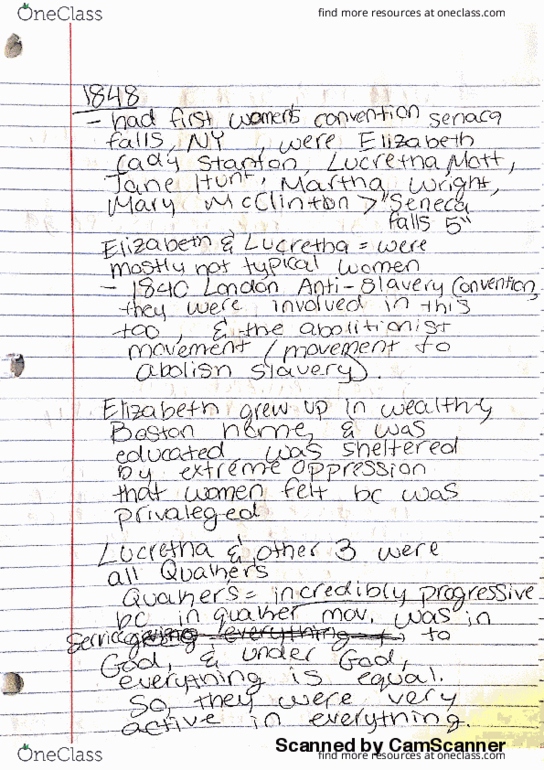 OneClass
find more resources at oneclass.com
1848
- had first women's convention senaca
falls, NY , were Elizabeth
Cady Stanton, Lucretna Mott,
Jane Hunt, Martha Wright,
Mary McClinton > "Seneca
falls 5"
Elizabeth & Lucretha = were
mostly not typical women
- 1840 London Anti-Slavery Convention,
they were involved in this
too , & the abolitionist
movement (movement to
abolish slavery).
Elizabeth grew up in wealthy
Boston home, & was
educated, was sheltered
by extreme oppression
that women felt bc was
privaleged
Lucretha & other 3 were
all Quakers
Quakers = incredibly progressive
bc in quaker mov. was in
service giving everything to
God, & under God,
everything is equal.
So, they were very
active in everything.
OneClass
Scanned by CamScanner
find more resources at oneclass.com